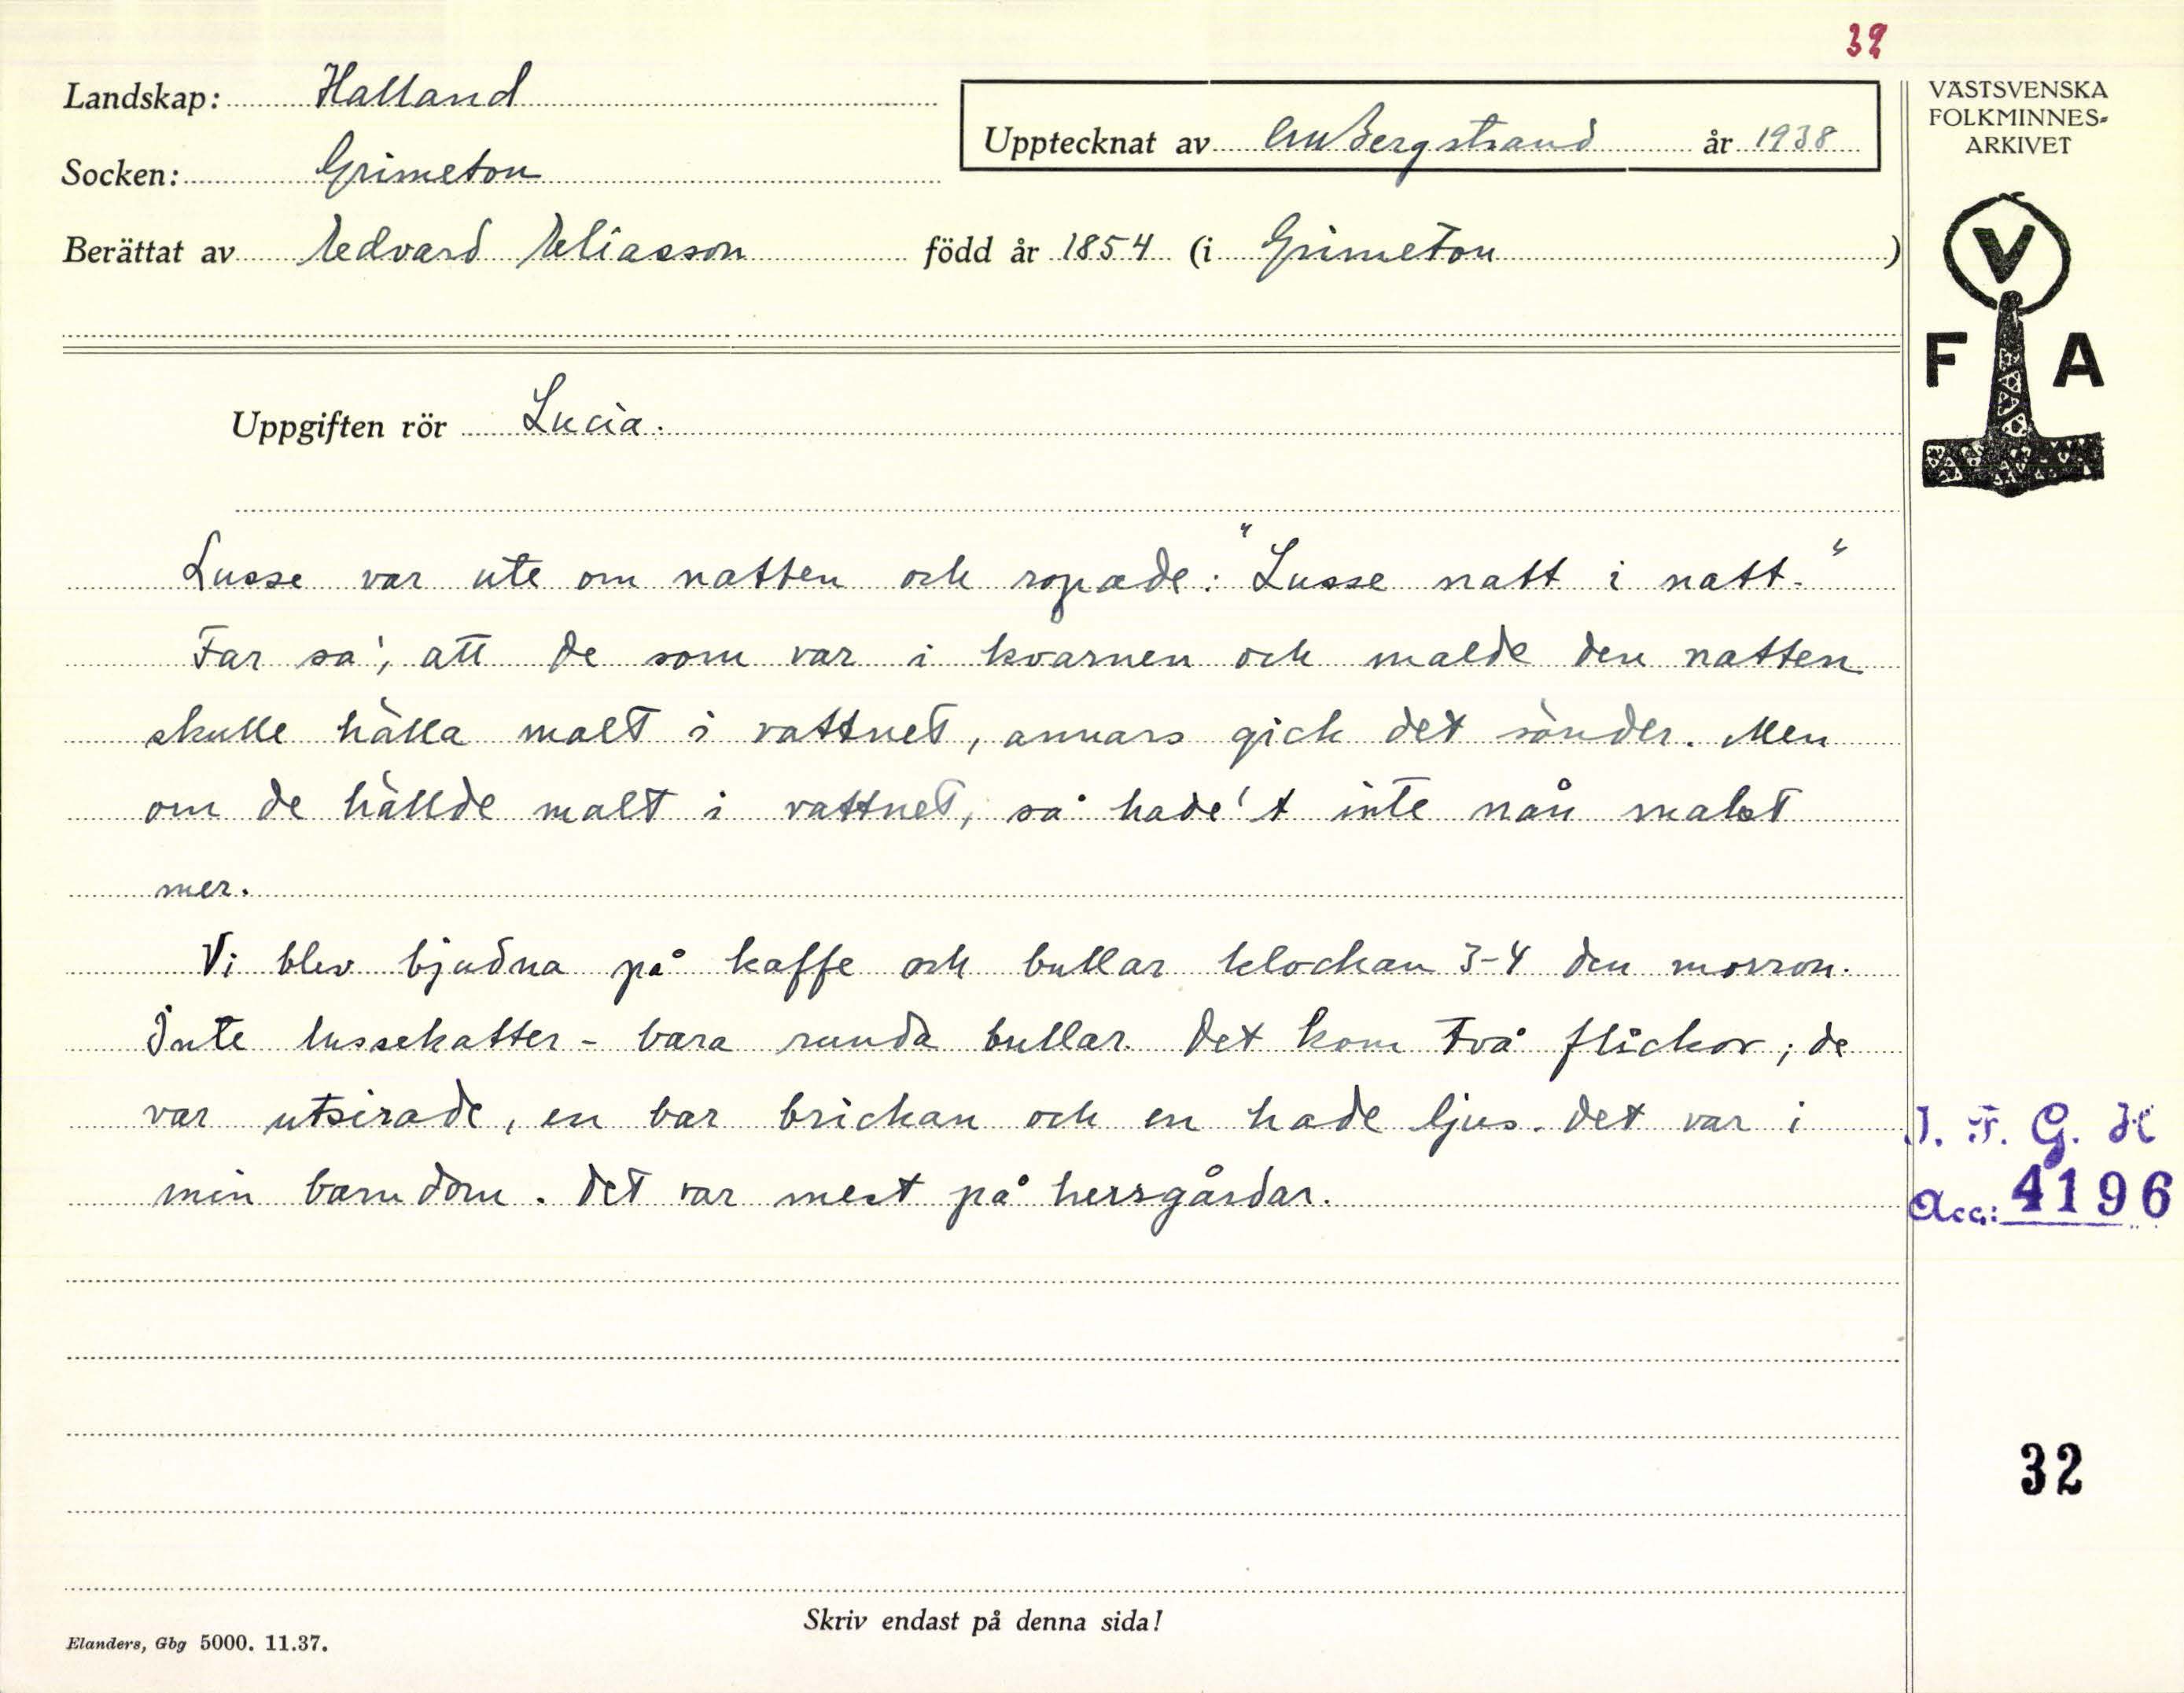 32
Landskap: Halland
Upptecknat av C.M. Bergstrand år 1938
VÄSTSVENSKA
FOLKMINNES-
ARKIVET
Socken: Grimeton
Berättat av Edvard Eliasson född år 1854 (i Grimeton)
V
F A
Uppgiften rör Lucia.
Lusse var ute om natten och ropade: "Lusse natt i natt."
Far sa', att de som var i kvarnen och malde den natten
skulle hälla malt i vattnet, annars gick det sönder. Men
om de hällde malt i vattnet, så hade't inte nån makt
mer.
Vi blev bjudna på kaffe och bullar klockan 3-4 den morron.
Inte lussekatter - bara runda bullar. Det kom två flickor; de
var utsirade, en bar brickan och en hade ljus. Det var i
min barndom. Det var mest på herrgårdar.
I. F. G. H
Acc: 4196
32
Skriv endast på denna sida!
Elanders, Gbg 5000. 11.37.